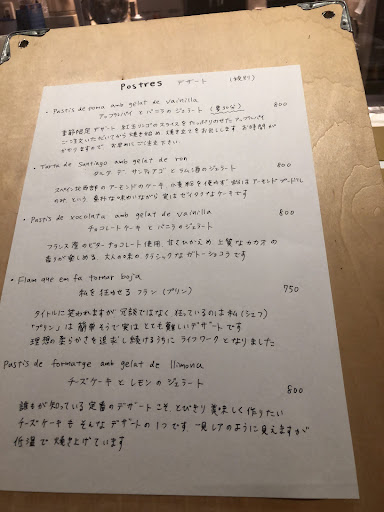 Postres デザート (税別)
・Pastis de poma amb gelat de vainilla 800
アップルパイ と バニラのジェラート (要30分)
季節限定デザート 紅玉リンゴのスライスをたっぷりのせたアップルパイ
ご注文いただいてから焼き始め 焼き立てをお出しします お時間が
かかりますので お早めにご注文下さい
・Tarta de Santiago amb gelat de ron 800
タルタ デ サンティアゴ と ラム酒のジェラート
スペイン北西部のアーモンドのケーキ 小麦粉を使わず 粉はアーモンドプードル
のみ という 素朴な味わいながら 実はゼイタクなケーキです
・Pastis de xocolata amb gelat de vainilla 800
チョコレートケーキ と バニラのジェラート
フランス産のビターチョコレート使用 甘さひかえめ 上質なカカオの
香りが楽しめる 大人の味の クラシックなガトーショコラです
・Flam que em fa tornar boja
私を狂わせる フラン (プリン) 750
タイトルに笑われますが 冗談ではなく 狂っているのは私 (シェフ)
「プリン」は 簡単そうで実は とても難しいデザートです
理想の柔らかさを追求し続けるうちに ライフワークとなりました
Pastis de formatge amb gelat de llimona
チーズケーキ と レモンのジェラート 800
誰もが知っている定番のデザートこそ とびきり美味しく作りたい
チーズケーキも そんなデザートの1つです 一見レアのように見えますが
低温で焼き上げています